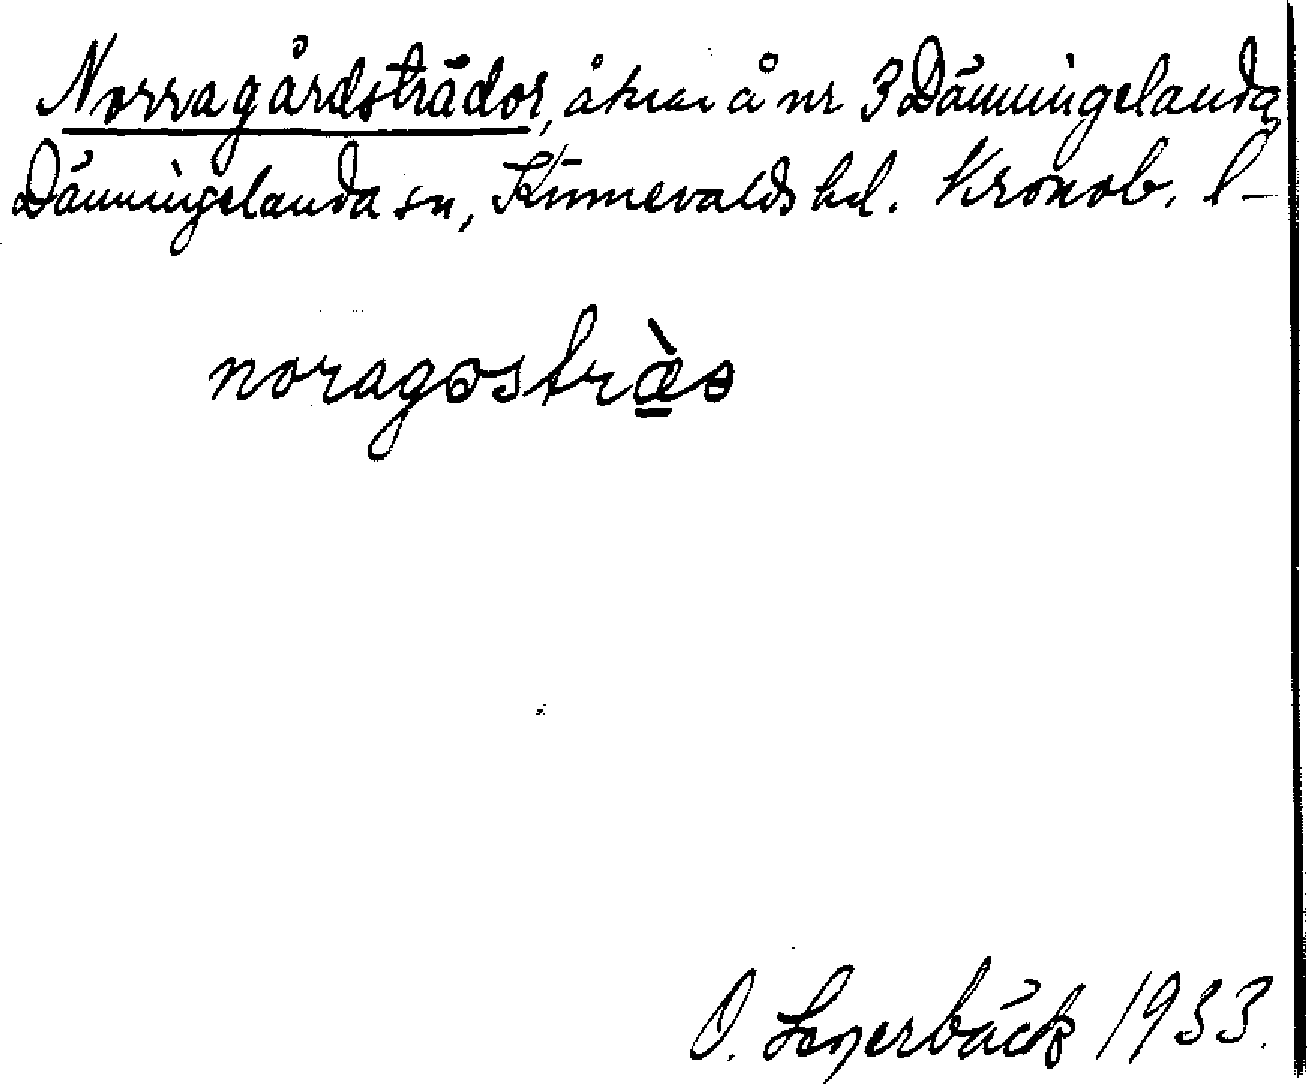 Norragårdsträdor, åkrar å nr 3 Dänningelanda
Dänningelanda sn, Kinnevalds hd. Kronob. l-
noragostræ̀s
O. Lagerbäck 1933.